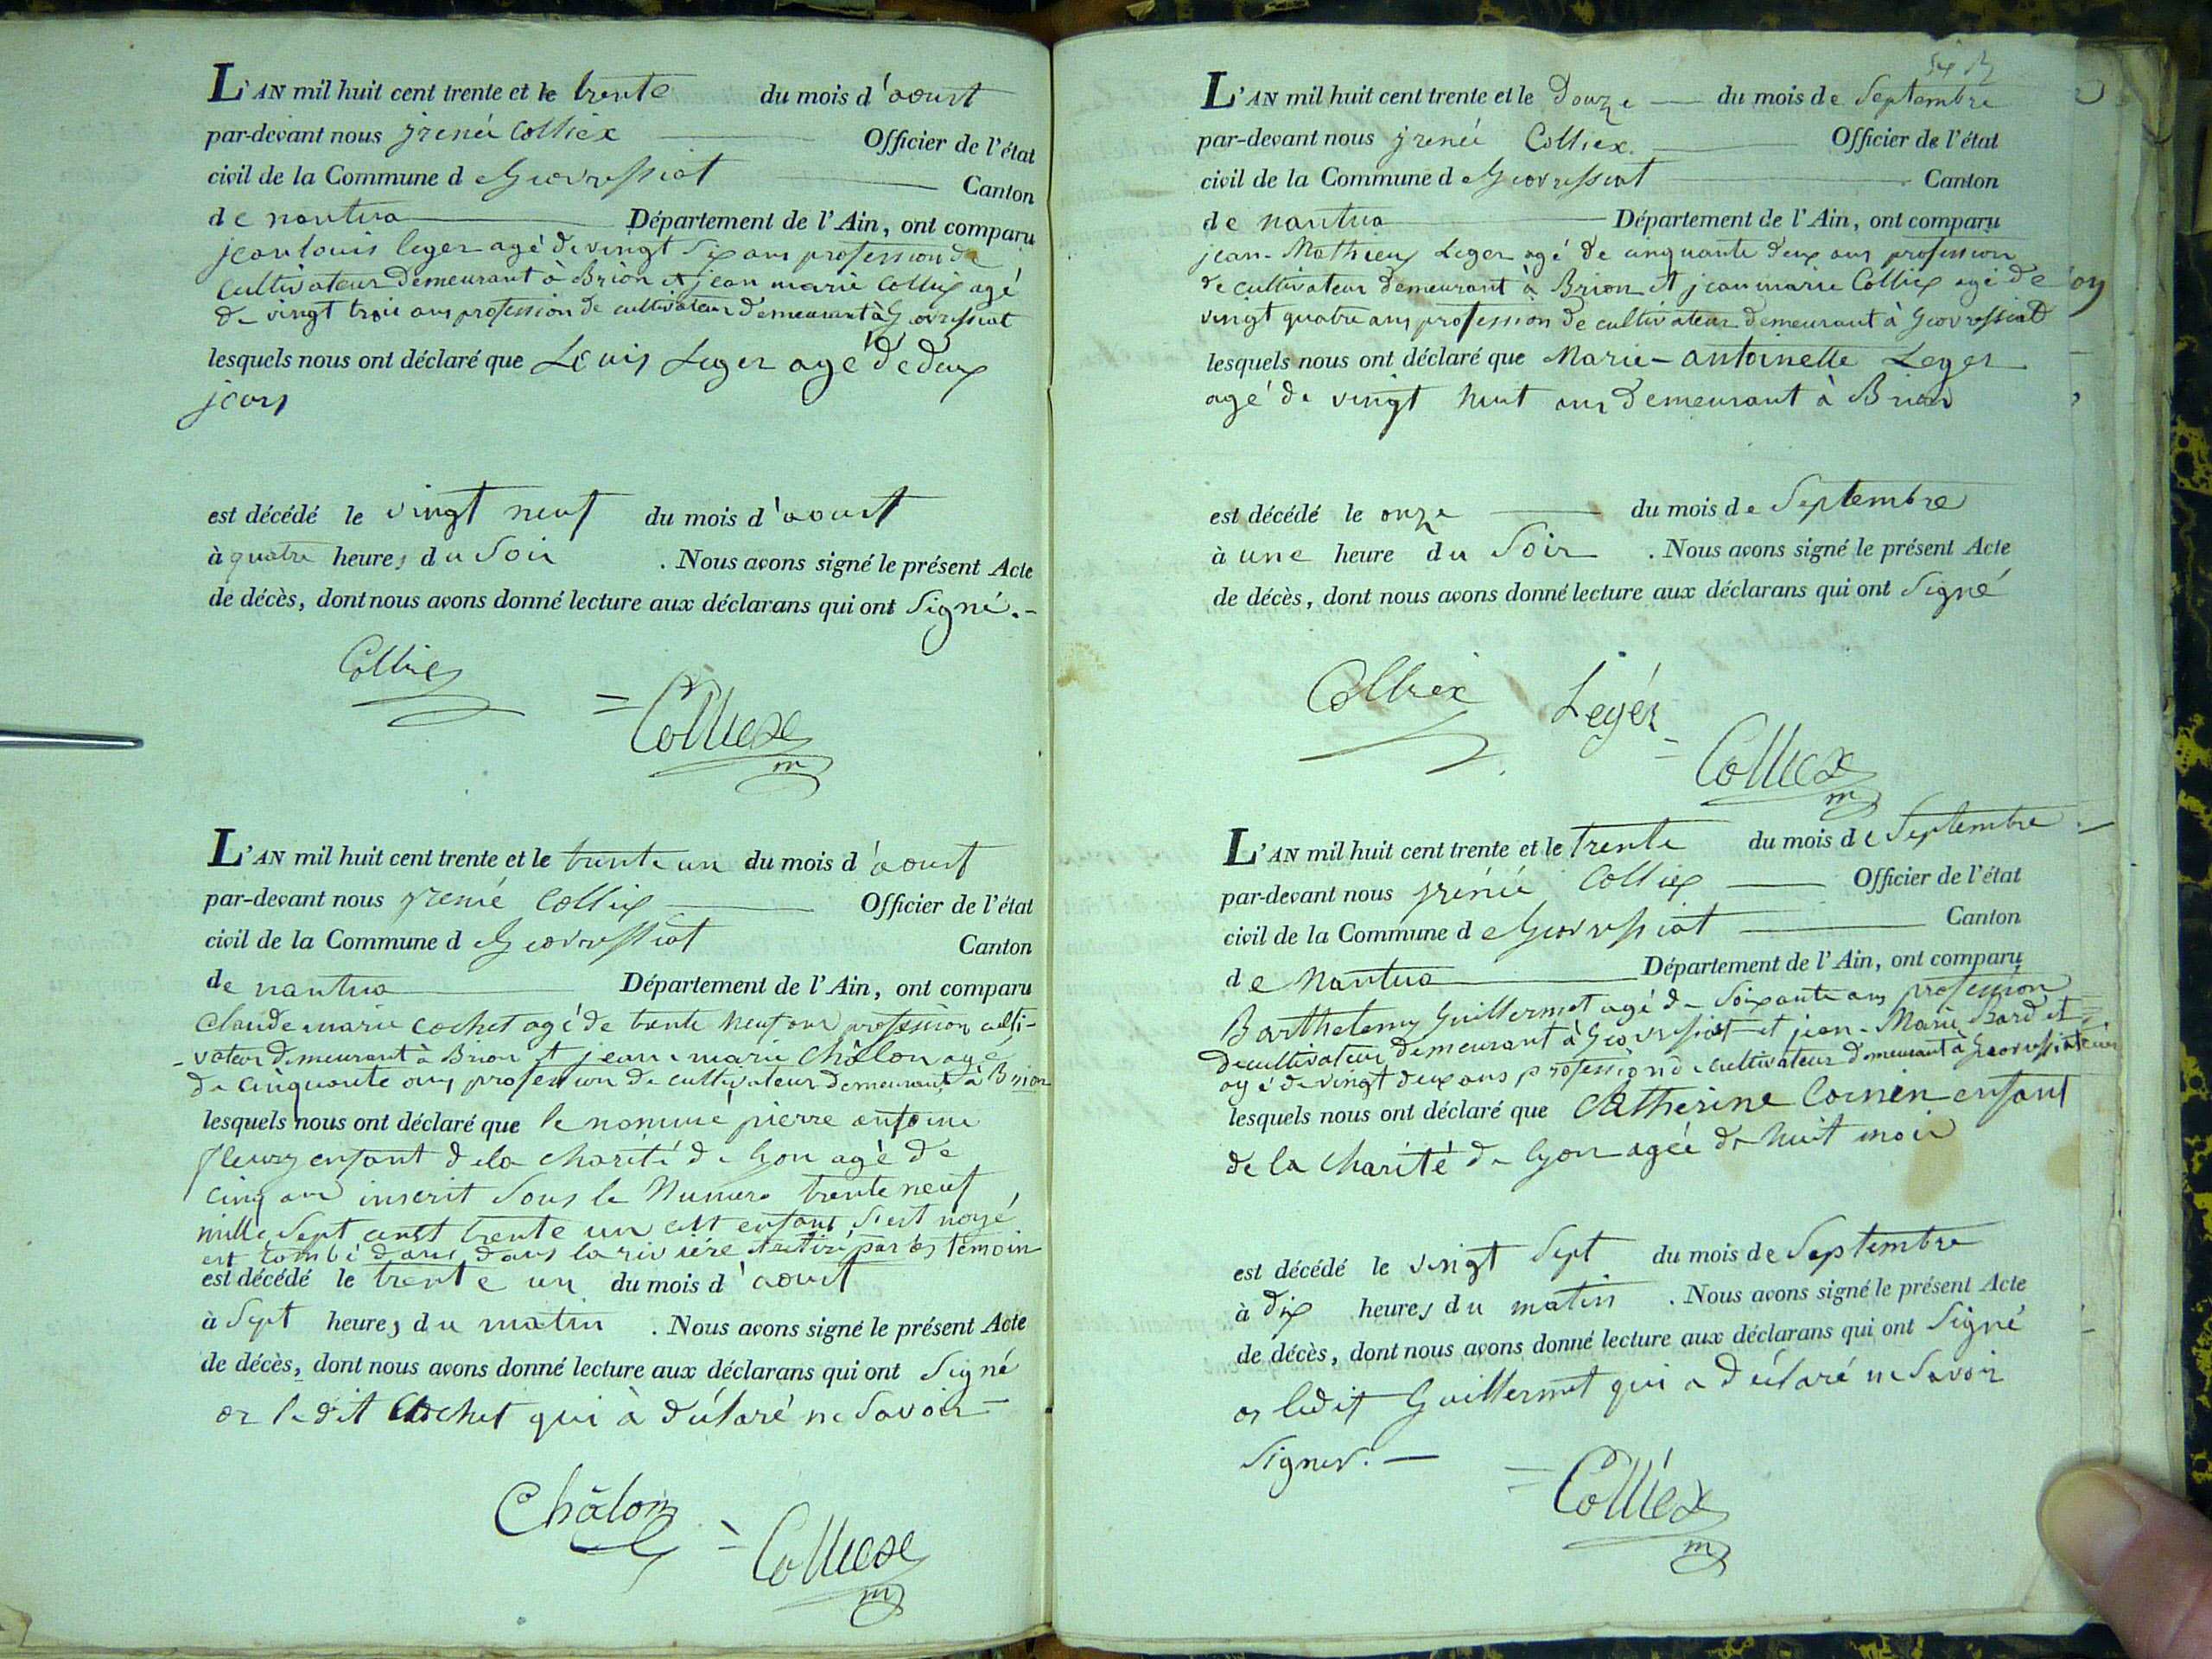 L'AN mil huit cent trente et le trente du mois d'aoust
par-devant nous jrenée Colliex Officier de l'état
civil de la Commune de Geovressiat Canton
de nantua Département de l'Ain, ont comparu
jean louis leger agé de vingt six ans profession de
cultivateur demeurant à Brion et jean marie Colliex agé
de vingt trois ans profession de cultivateur demeurant à Geovressiat
lesquels nous ont déclaré que Louis Leger agé de deux
jours
est décédé le vingt neuf du mois d'aoust
à quatre heures du Soir . Nous avons signé le présent Acte
de décès, dont nous avons donné lecture aux déclarans qui ont Signé.-
Colliex
= Colliex
m
L'AN mil huit cent trente et le trente un du mois d'aoust
par-devant nous jrenée Colliex Officier de l'état
civil de la Commune de Geovressiat Canton
de nantua Département de l'Ain, ont comparu
Claude marie cochet agé de trente neuf ans profession culti-
-vateur demeurant à Brion et jean marie Châlon agé
de cinquante ans profession de cultivateur demeurant à Brion
lesquels nous ont déclaré que le nommé pierre antoine
fleury enfant de la charité de lyon agé de
cinq ans inscrit sous le Numero trente neuf
mille Sept cent trente un cet enfant s'est noyé
est tombé dans dans la riviére retiré par témoin
est décédé le trente un du mois d'aoust
à Sept heures du matin . Nous avons signé le présent Acte
de décès, dont nous avons donné lecture aux déclarans qui ont Signé
or le dit Cochet qui à déclaré ne Savoir
Châlon
= Colliex
m
L'AN mil huit cent trente et le Douze du mois de Septembre
par-devant nous jrenée Colliex. Officier de l'état
civil de la Commune de Geovressiat Canton
de nantua Département de l'Ain, ont comparu
jean-Mathieu Leger agé de cinquante deux ans profession
de cultivateur demeurant à Brion et jean marie Colliex agé de
vingt quatre ans profession de cultivateur demeurant à Geovressiat
lesquels nous ont déclaré que Marie-antoinette Leger
agé de vingt huit ans demeurant à Brion
est décédé le onze du mois de Septembre
à une heure du Soir . Nous avons signé le présent Acte
de décès, dont nous avons donné lecture aux déclarans qui ont Signé
Colliex Legér
= Colliex
m
L'AN mil huit cent trente et le trente du mois de Septembre
par-devant nous jrénée Colliex Officier de l'état
civil de la Commune de Geovressiat Canton
de Nantua Département de l'Ain, ont comparu
Barthelemy Guillermet agé de Soixante ans profession
de cultivateur demeurant à Geovressiat et jean-Marie Bardet
agé de vingt deux ans profession de cultivateur demeurant à Geovressiat
lesquels nous ont déclaré que Catherine Cornen enfant
de la charité de lyon agée de huit mois
est décédé le vingt Sept du mois de Septembre
à dix heures du matin . Nous avons signé le présent Acte
de décès, dont nous avons donné lecture aux déclarans qui ont Signé
or ledit Guillermet qui a déclaré ne Savoir
Signer.-
= Colliéx
m